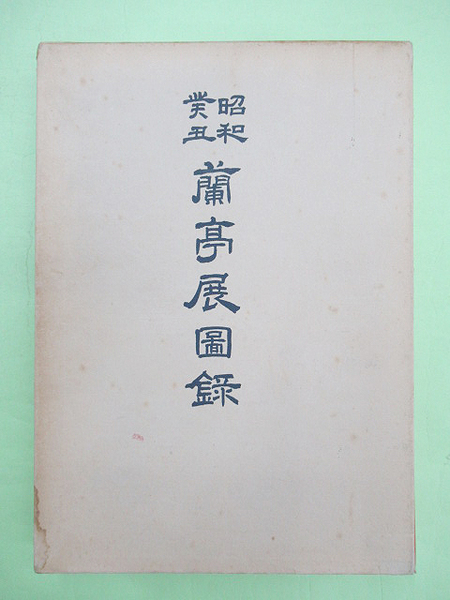 昭和
癸丑
蘭亭展圖錄